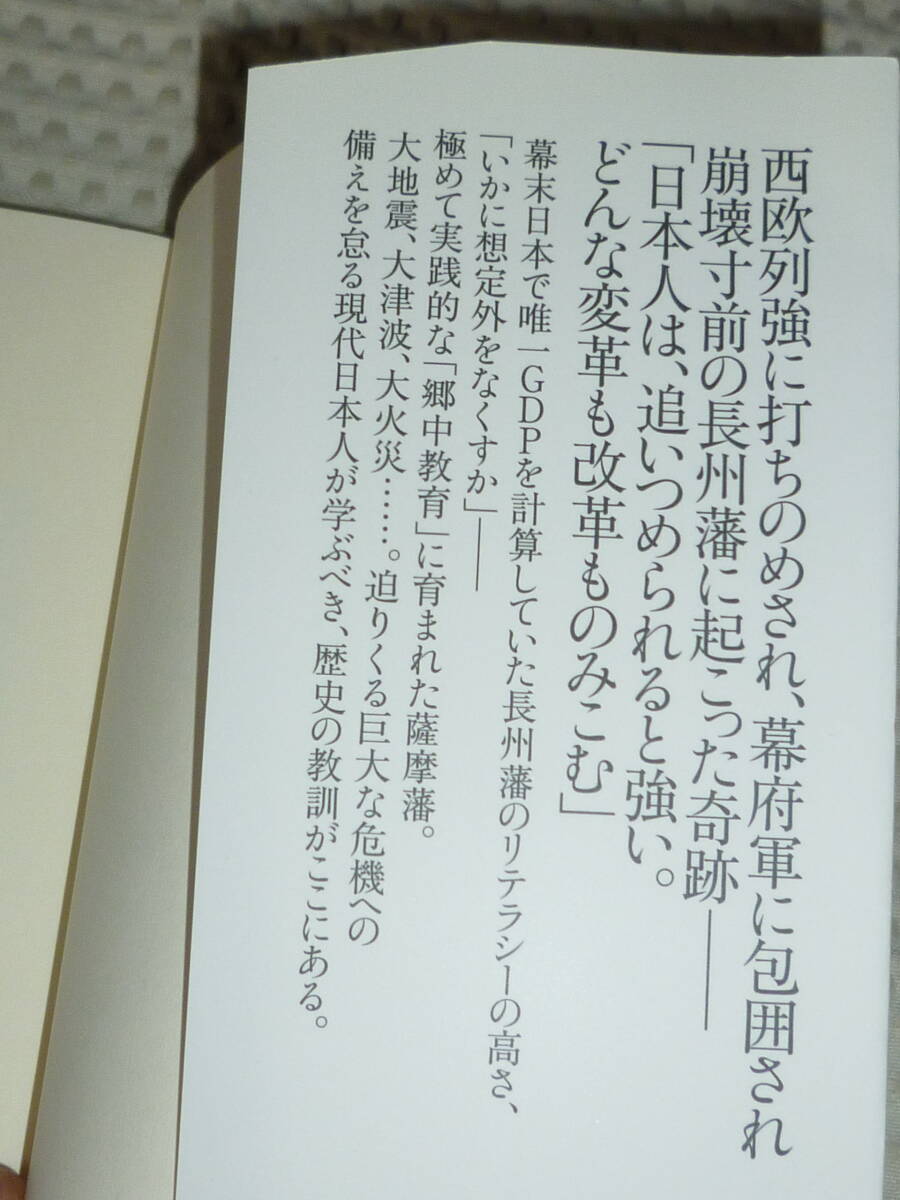 西欧列強に打ちのめされ、幕府軍に包囲され
崩壊寸前の長州藩に起こった奇跡――
「日本人は、追いつめられると強い。
どんな変革も改革ものみこむ」
幕末日本で唯一GDPを計算していた長州藩のリテラシーの高さ、
「いかに想定外をなくすか」――
極めて実践的な「郷中教育」に育まれた薩摩藩。
大地震、大津波、大火災……。迫りくる巨大な危機への
備えを怠る現代日本人が学ぶべき、歴史の教訓がここにある。